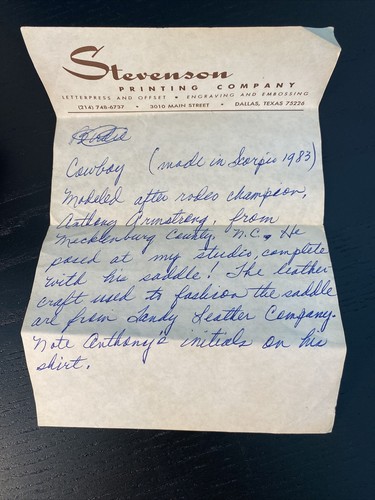 Stevenson
PRINTING COMPANY
LETTERPRESS AND OFFSET • ENGRAVING AND EMBOSSING
(214) 748-6737 • 3010 MAIN STREET • DALLAS, TEXAS 75226
Cowboy (made in Georgia 1983)
Modeled after rodeo champion,
Anthony Armstrong, from
Mecklenburg County, N.C. He
posed at my studio, complete
with his saddle! The leather
craft used to fashion the saddle
are from Tandy Leather Company.
Note Anthony's initials on his
shirt.